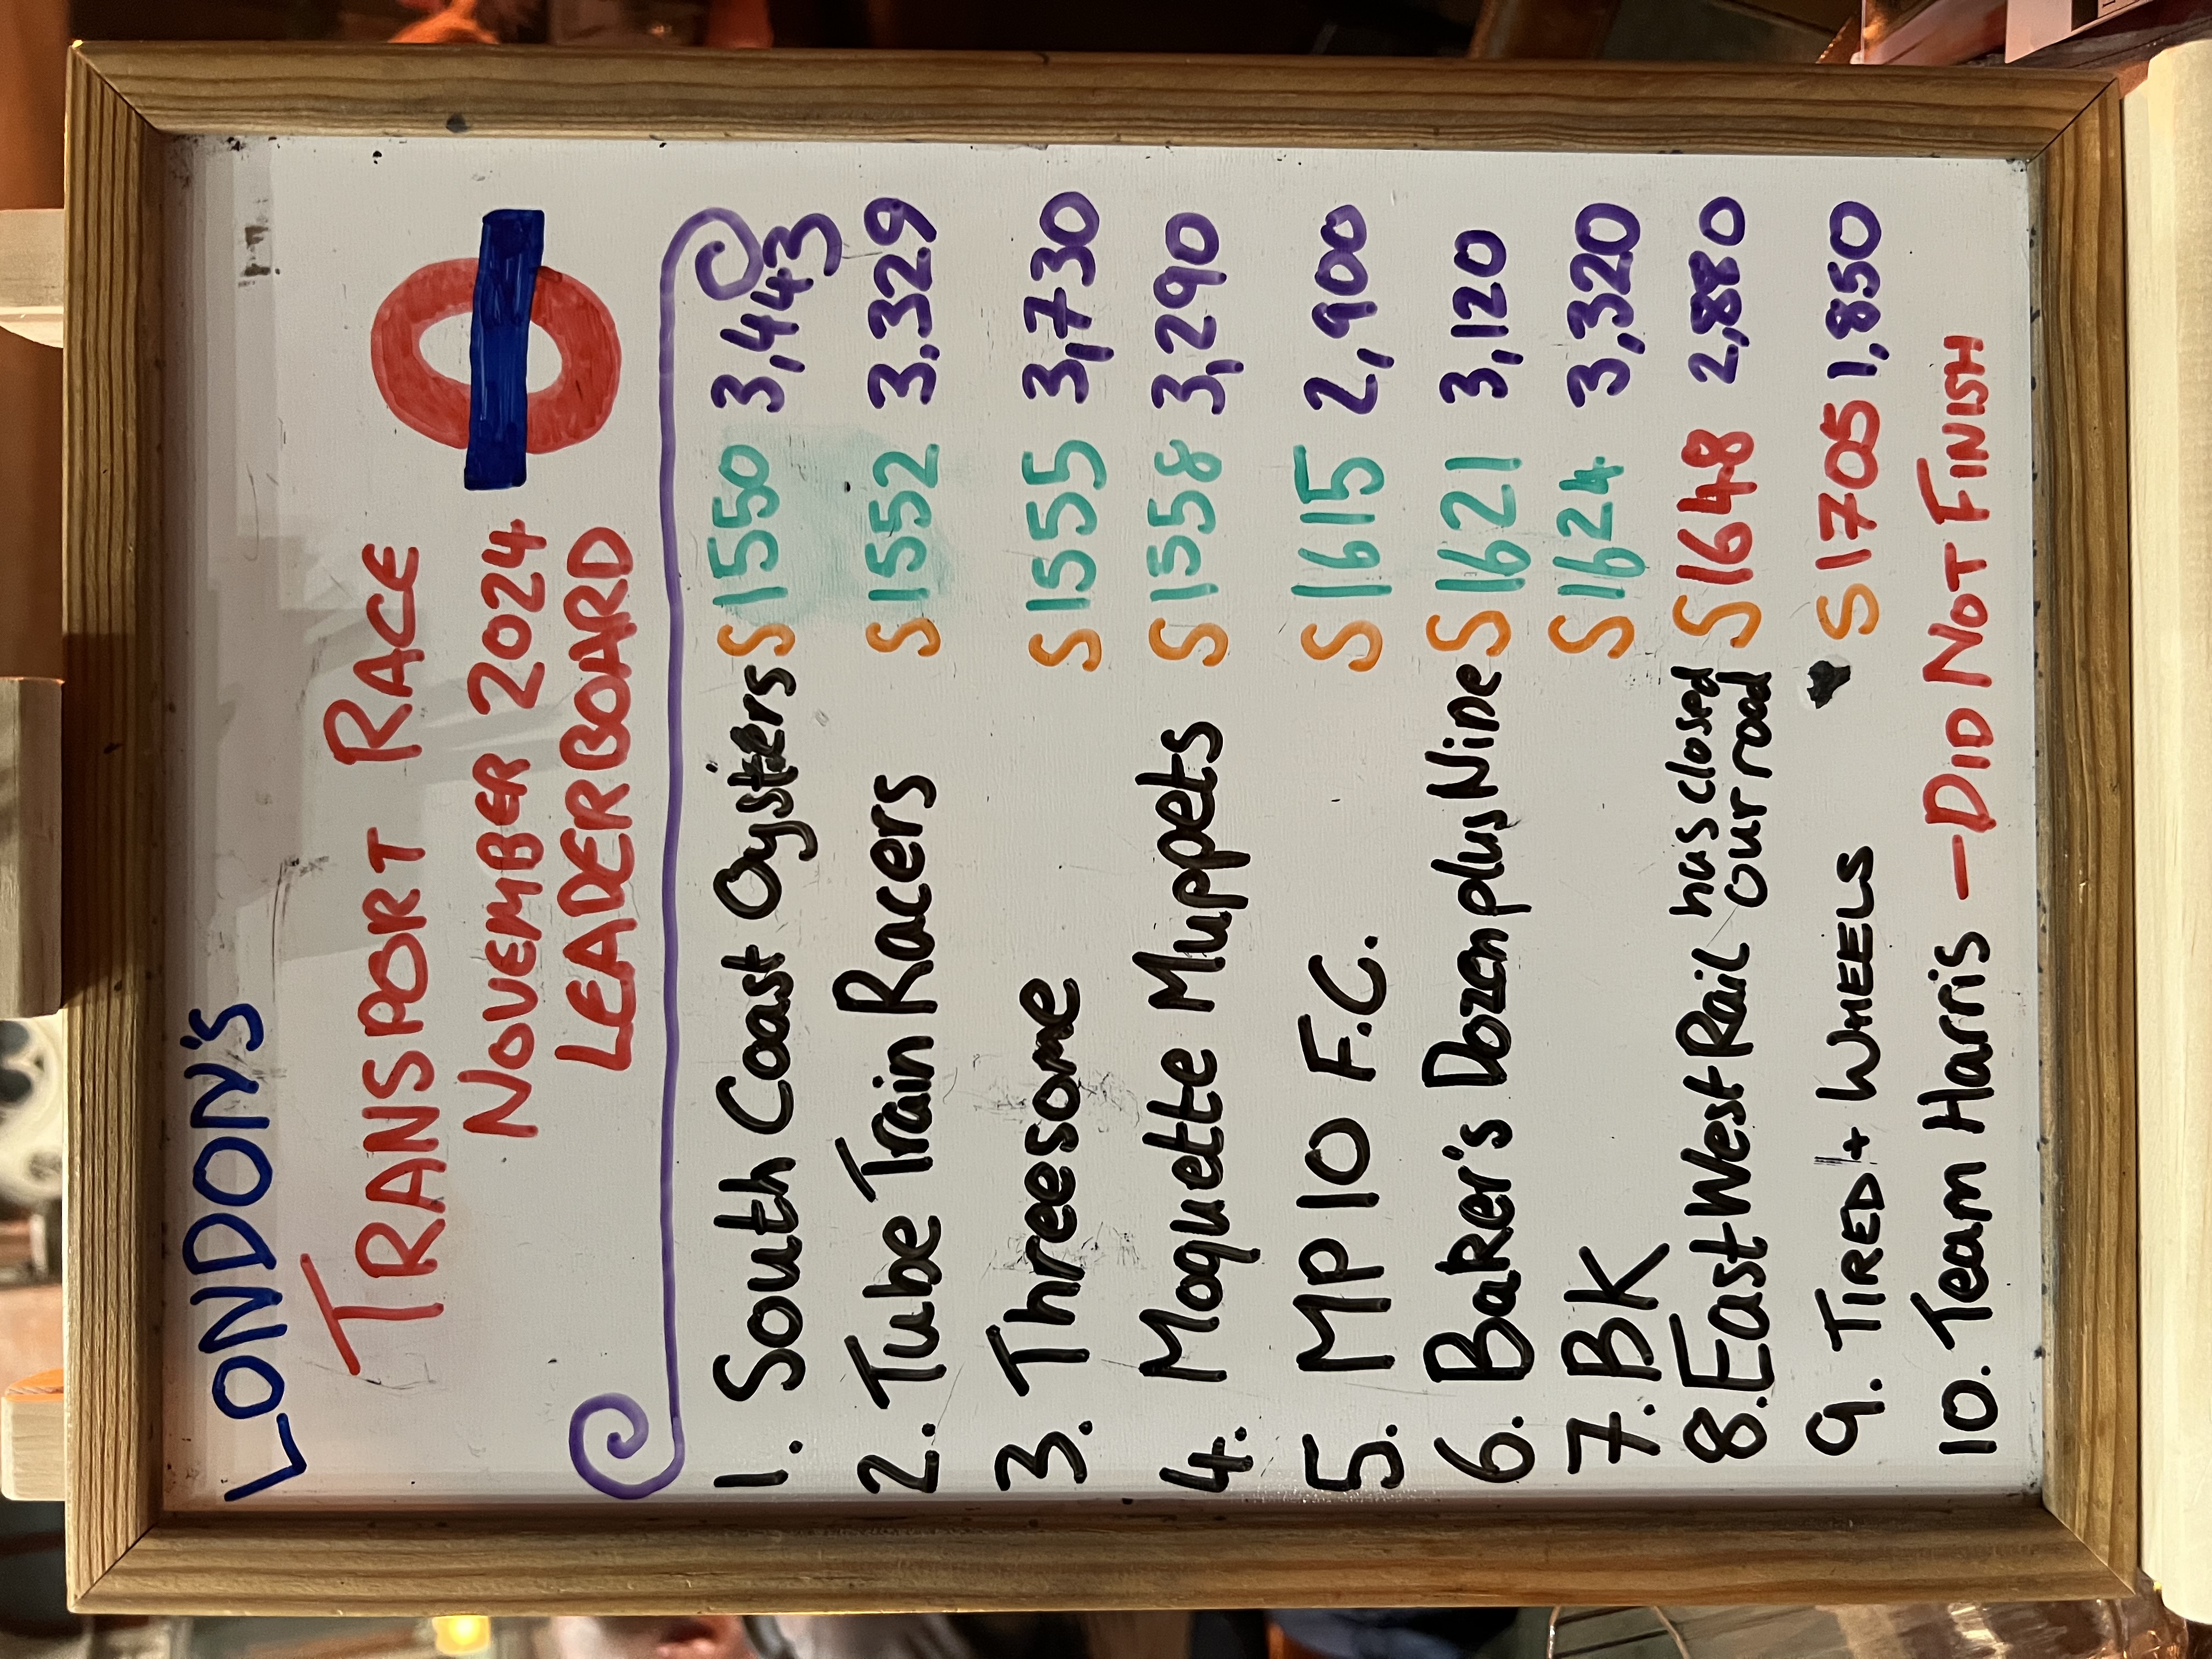 LONDON'S
TRANSPORT RACE
NOVEMBER 2024
LEADERBOARD
1. South Coast Oysters S 1550 3,443
2. Tube Train Racers S 1552 3.329
3. Threesome S 1555 3,730
4. Moquette Muppets S 1558 3,290
5. MP 10 F.C. S 1615 2,900
6. Baker's Dozen plus Nine S 1621 3,120
7. BK S 1624 3,320
8. East West Rail has closed S 1648 2,880
our road
9. TIRED + WHEELS S 1705 1,850
10. Team Harris - DID NOT FINISH